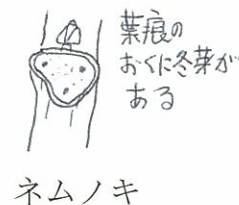 葉痕の
おくに冬芽が
ある
ネムノキ